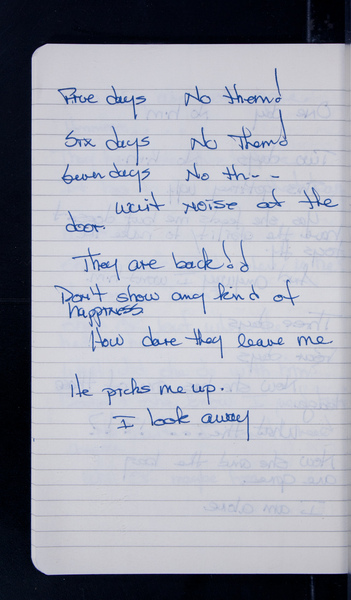 Five days No them!
Six days No Them!
Seven days No th--
wait NOISE at the
door.
They are back!!
Don't show any kind of
happiness
How dare they leave me
He picks me up.
I look away